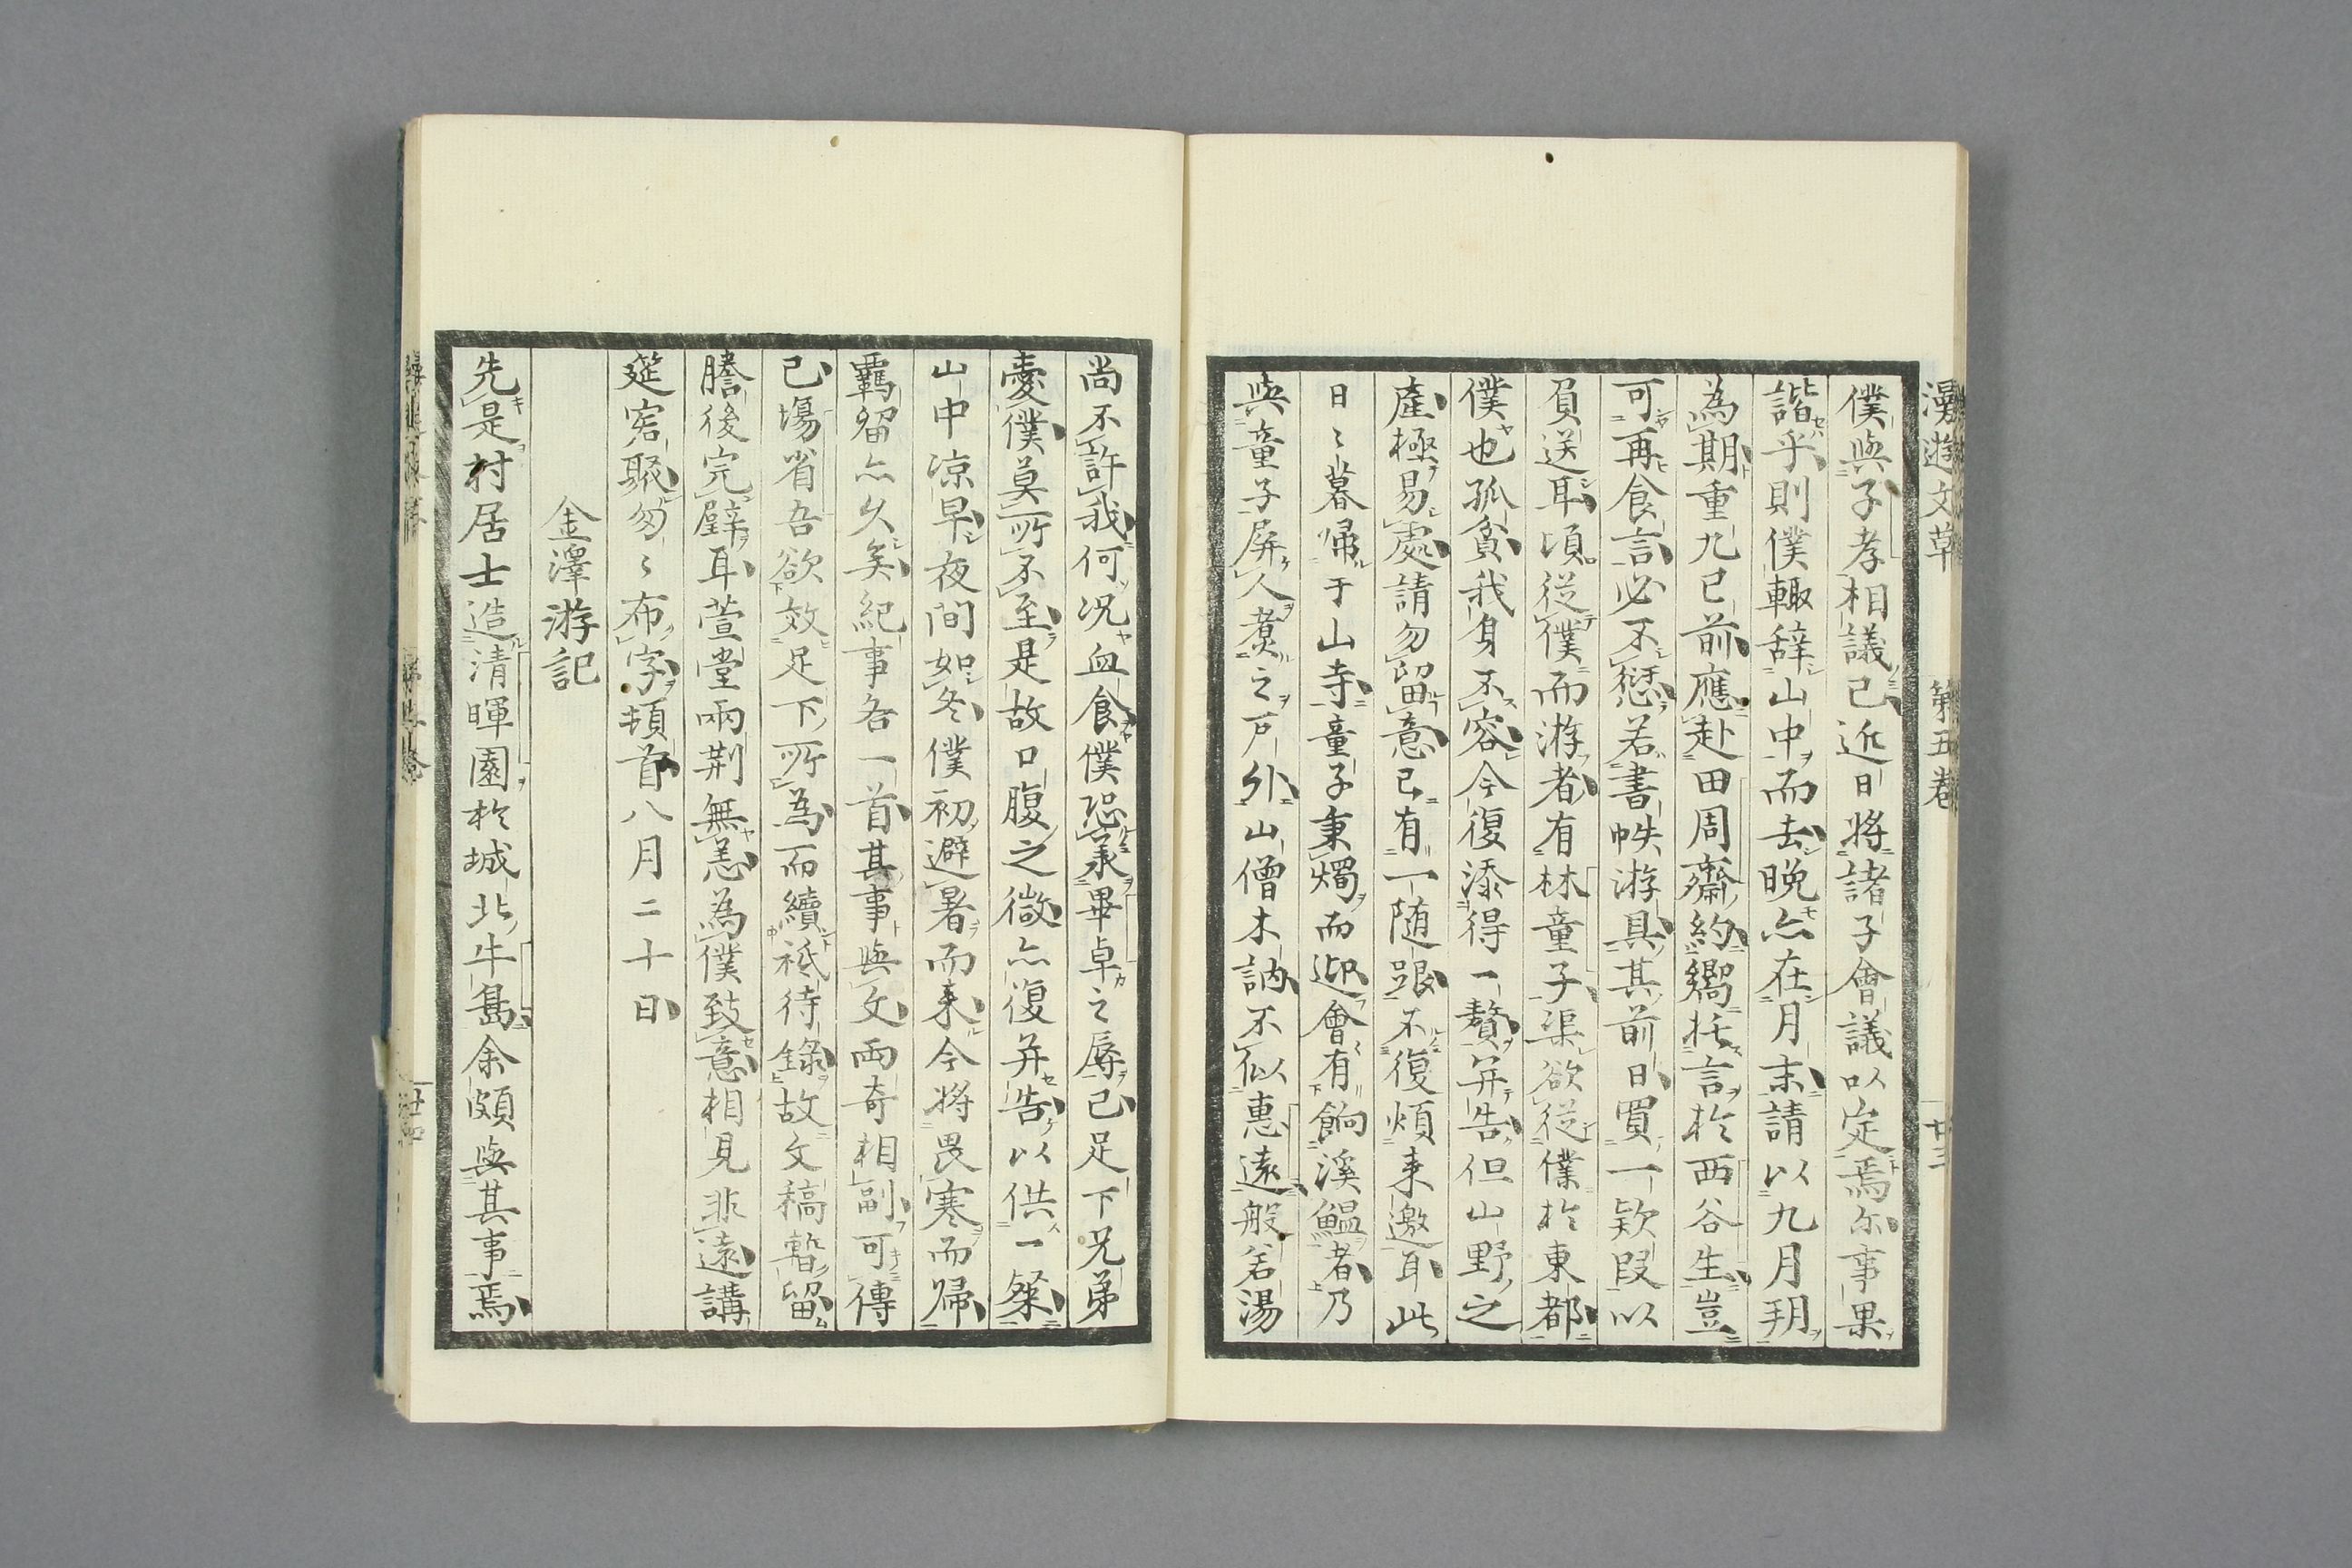 漫遊文草 第五卷 廿三
僕與子孝相議已近日將諸子會議以定焉尓事果
諧乎則僕輙辞山中而去晩亦在月末請以九月朔
為期重九已前應赴田周齋約嚮托言於西谷生豈
可再食言必不愆若書帙游具其前日買一欵段以
負送耳頃從僕而游者有林童子渠欲從僕於東都
僕也孤貧我身不容今復添得一贅并告但山野之
產極易處請勿留意已有一随跟不復煩来邀耳此
日〻暮帰于山寺童子秉燭而迎會有餉溪鰮者乃
與童子屏人煑之戸外山僧木訥不似惠遠般若湯
尚不許我何况血食僕恐衆畢卓之辱已足下兄弟
憂僕莫所不至是故口腹之微亦復并告以供一粲
山中凉早夜間如冬僕初避暑而来今將畏寒而帰
羈留亦久矣紀事各一首其事與文兩奇相副可傳
已塲省吾欲效足下所為而續祗待錄故文稿暫留
謄後完璧耳萱堂兩荆無恙為僕致意相見非遠講
筵宭聚匆〻布字頓首八月二十日
金澤游記
先是村居士造清暉園於城北牛島余頗與其事焉